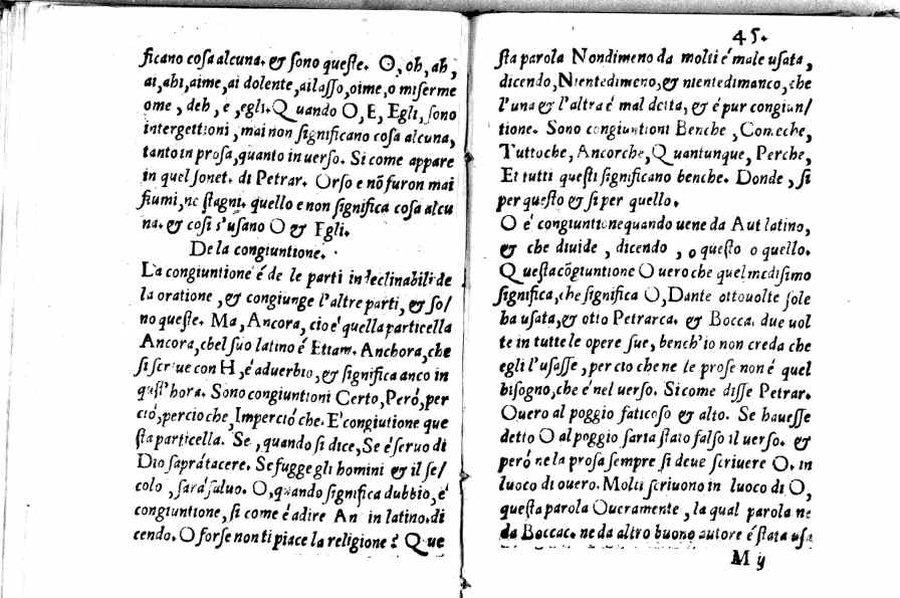 ficano cosa alcuna. & sono queste. O, oh, ah,
ai, ahi, aime, ai dolente, ai lasso, oime, o miserme
ome, deh, e, egli. Quando O, E, Egli, sono
intergettioni, mai non significano cosa alcuna,
tanto in prosa, quanto in uerso. Si come appare
in quel sonet. di Petrar. Orso e nõ furon mai
fiumi, ne stagni. quello e non significa cosa alcu
na. & cosi s'usano O & Egli.
De la congiuntione.
La congiuntione é de le parti indeclinabili de
la oratione, & congiunge l'altre parti, & so/
no queste. Ma, Ancora, cio é quella particella
Ancora, chel suo latino é Etiam. Anchora, che
si scriue con H, é aduerbio, & significa anco in
quest' hora. Sono congiuntioni Certo, Peró, per
ció, percio che, Imperció che. E' congiutione que
sta particella. Se, quando si dice, Se é seruo di
Dio saprá tacere. Se fugge gli homini & il se/
colo, sará saluo. O, quando significa dubbio, é
congiuntione, si come é a dire An in latino. di
cendo. O forse non ti piace la religione? Que
45.
sta parola Nondimeno da molti é male usata,
dicendo, Nientedimeno, & nientedimanco, che
l'una & l'altra é mal detta, & é pur congiun/
tione. Sono congiuntioni Benche, Comeche,
Tuttoche, Ancorche, Quantunque, Perche,
Et tutti questi significano benche. Donde, si
per questo & si per quello.
O é congiuntione quando uene da Aut latino,
& che diuide, dicendo, o questo o quello.
Questa cõgiuntione O uero che quel medisimo
significa, che significa O, Dante otto uolte sole
ha usata, & otto Petrarca. & Bocca. due uol
te in tutte le opere sue, bench'io non creda che
egli l'usasse, per cio che ne le prose non é quel
bisogno, che é nel uerso. Si come disse Petrar.
Ouero al poggio faticoso & alto. Se hauesse
detto O al poggio saria stato falso il uerso. &
peró ne la prosa sempre si deue scriuere O. in
luoco di ouero. Molti scriuono in luoco di O,
questa parola Oueramente, la qual parola ne
da Boccac. ne da altro buono autore é stata usa
M ij